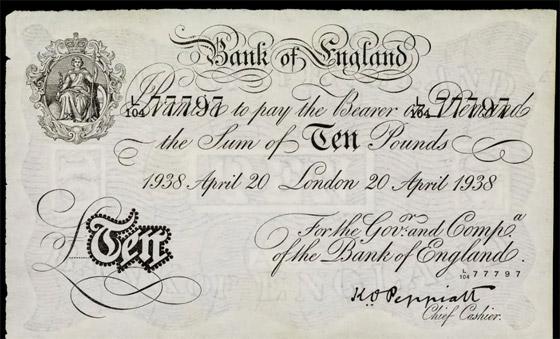 Bank of England
L/104 77797 L/104 77797
Promise to pay the Bearer on Demand
the Sum of Ten Pounds
1938 April 20 London 20 April 1938
For the Govr. and Compa.
of the Bank of England.
L/104 77797
£Ten
K.O. Peppiatt
Chief Cashier.